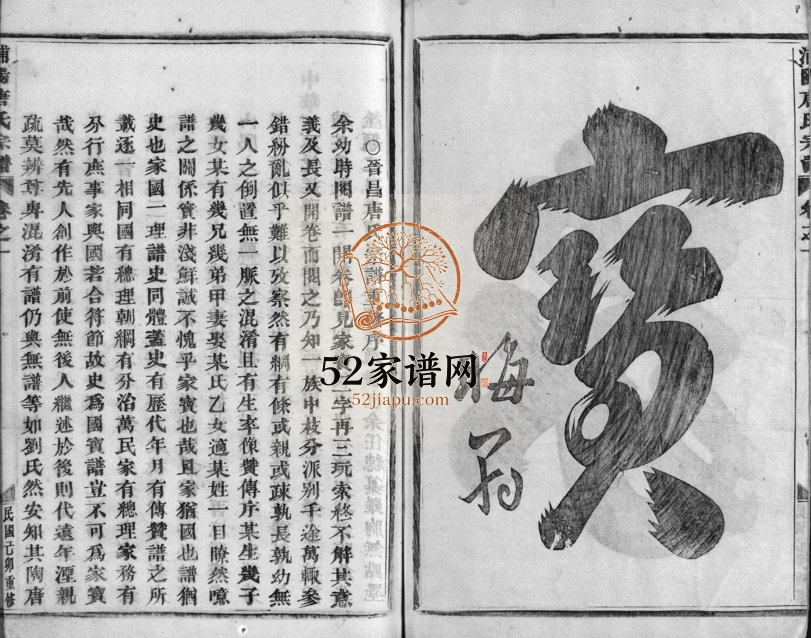 寶
梅翁
浦陽唐氏宗譜 卷之一
○晉昌唐氏宗譜 序
余幼時閱譜一開卷即見家 二字再三玩索終不解其意
義及長又開卷而閱之乃知一族中枝分派別千途萬轍參
錯紛亂似乎難以攷察然有綱有條或親或疎孰長孰幼無
一人之倒置無一脈之混淆且有生率像贊傳序某生幾子
幾女某有幾兄幾弟甲妻娶某氏乙女適某姓一目瞭然噫
譜之關係實非淺鮮誠不愧乎家寶也哉且家猶國也譜猶
史也家國一理譜史同體蓋史有歷代年月有傳贊譜之所
載逐一相同國有總理朝綱有分治萬民家有總理家務有
分行庶事家與國若合符節故史為國寶譜豈不可為家寶
哉然有先人創作於前使無後人繼述於後則代遠年湮親
疏莫辨尊卑混淆有譜仍與無譜等如劉氏然安知其陶唐
浦陽唐氏宗譜 卷之一
民國乙卯重修
52家谱网
52jiapu.com